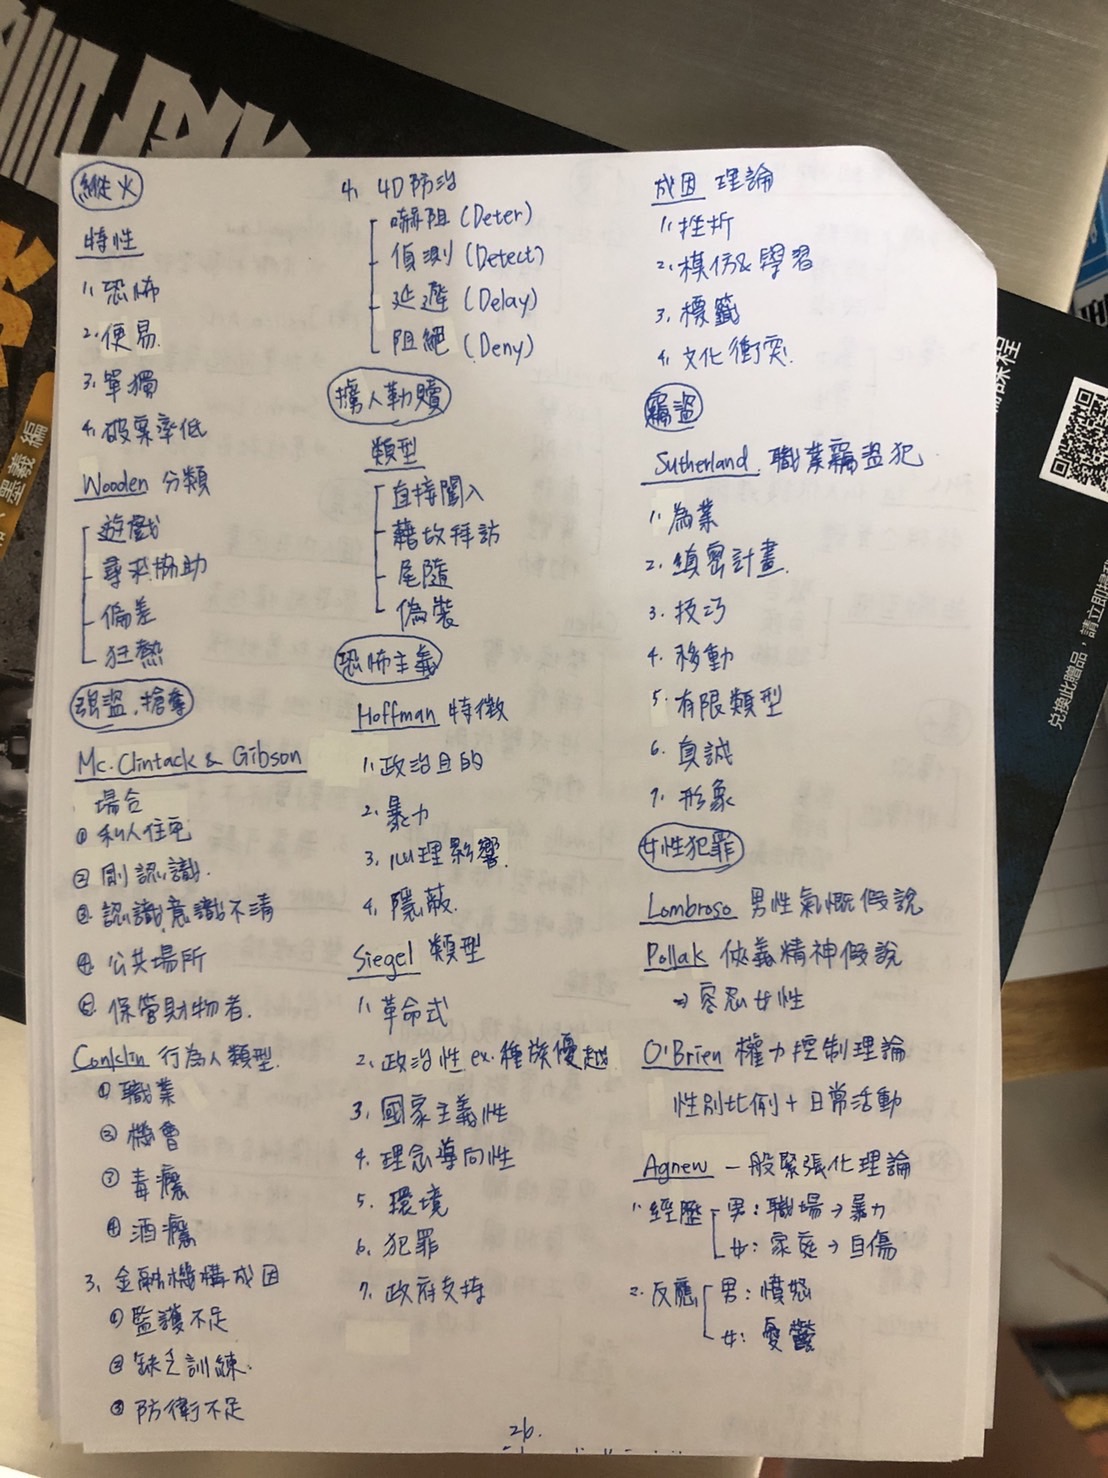 縱火
特性
1. 恐怖
2. 便易
3. 單獨
4. 破案率低
Wooden 分類
遊戲
尋求協助
偏差
狂熱
強盜、搶奪
Mc. Clintack & Gibson
場合
① 私人住宅
② 剛認識.
③ 認識,意識不清
④ 公共場所
⑤ 保管財物者.
Conklin 行為人類型
① 職業
② 機會
③ 毒癮
④ 酒癮
3. 金融機構成因
① 監護不足
② 缺乏訓練.
③ 防衛不足
4. 4D防治
嚇阻 (Deter)
偵測 (Detect)
延遲 (Delay)
阻絕 (Deny)
擄人勒贖
類型
直接闖入
藉故拜訪
尾隨
偽裝
恐怖主義
Hoffman 特徵
1. 政治目的
2. 暴力
3. 心理影響.
4. 隱蔽.
Siegel 類型
1. 革命式
2. 政治性 ex. 種族優越
3. 國家主義性
4. 理念導向性
5. 環境
6. 犯罪
7. 政府支持
成因 理論
1. 挫折
2. 模仿&學習
3. 標籤
4. 文化衝突.
竊盜
Sutherland. 職業竊盜犯
1. 為業
2. 縝密計畫.
3. 技巧
4. 移動
5. 有限類型
6. 真誠
7. 形象
女性犯罪
Lombroso 男性氣慨假說
Pollak 俠義精神假說
⇒ 容忍女性
O'Brien 權力控制理論
性別比例 + 日常活動
Agnew 一般緊張化理論
1. 經歷 男: 職場 → 暴力
女: 家庭 → 自傷
2. 反應 男: 憤怒
女: 憂鬱
26.
墨義 編
兌換此贈品，請立即掃
課程